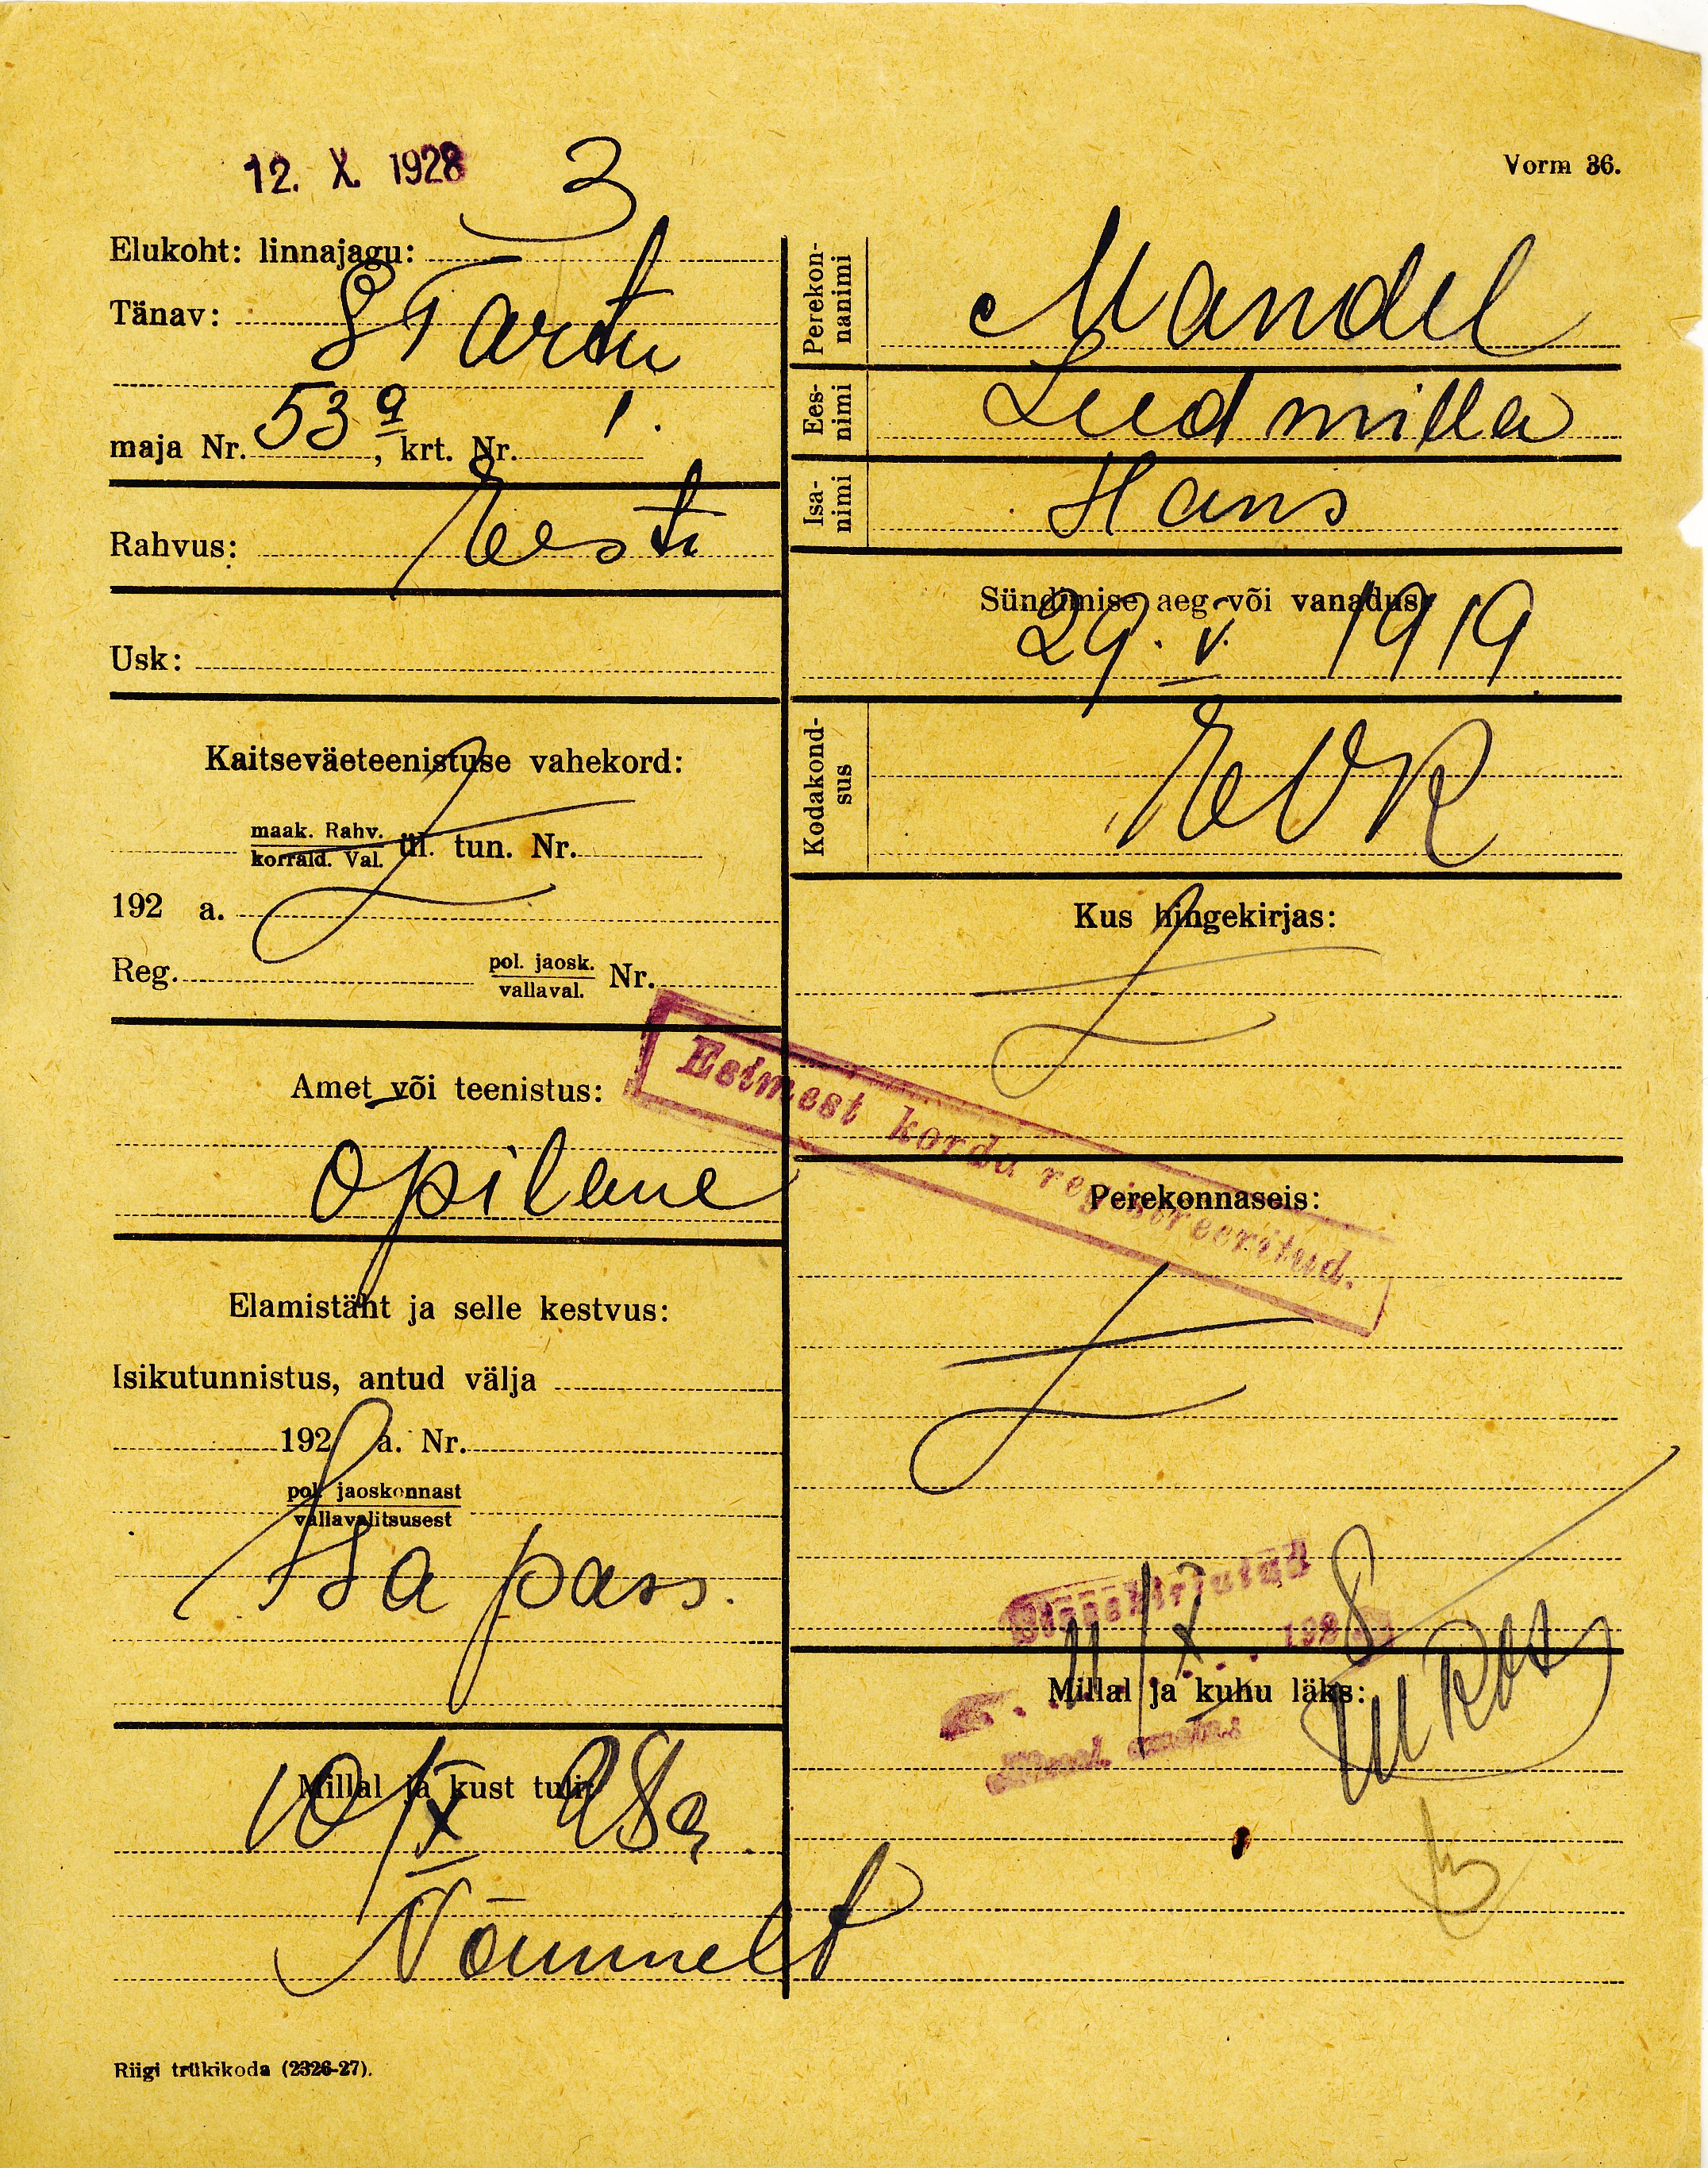 12. X. 1928
3
Vorm 36.
Elukoht: linnajagu:
Tänav: S Tartu
maja Nr. 53 a, krt. Nr. 1.
Rahvus: Eesti
Usk:
Kaitseväeteenistuse vahekord:
maak. Rahv.
korrald. Val. ül. tun. Nr.
192 a.
Reg. pol. jaosk.
vallaval. Nr.
Amet või teenistus:
Opilane
Elamistäht ja selle kestvus:
Isikutunnistus, antud välja
192 a. Nr.
pol. jaoskonnast
vallavalitsusest
Isa pass.
Millal ja kust tuli:
10/X 28 a.
Nõmmelt
Perekon-
nanimi
Mandel
Ees-
nimi
Ludmilla
Isa-
nimi
Hans
Sündimise aeg või vanadus:
29. V. 1919
Kodakond-
sus
EVR
Kus hingekirjas:
Esimest korda registreeritud.
Perekonnaseis:
Sissekirjutud
11/X 1928
Millal ja kuhu läks:
Riigi trükikoda (2326-27).